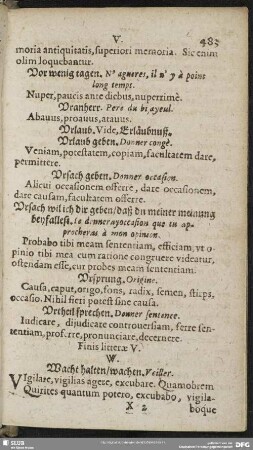 V. 483
moria antiquitatis, superiori memoria. Sic enim
olim loquebantur.
Vor wenig tagen. N'agueres, il n'y à point
long temps.
Nuper, paucis ante diebus, nuperrimè.
Vranherr. Pere du bi ayeul.
Abauus, proauus, atauus.
Vrlaub. Vide, Erläubnuß.
Vrlaub geben. Donner congè.
Veniam, potestatem, copiam, facultatem dare,
permittere.
Vrsach geben. Donner occasion.
Alicui occasionem offerre, dare occasionem,
dare causam, facultatem offerre.
Vrsach wil ich dir geben / daß du meiner meinung
beyfallest. Ie donneray occasion que tu ap-
procheras à mon opinion.
Probabo tibi meam sententiam, efficiam, vt o-
pinio tibi mea cum ratione congruere videatur,
ostendam esse, cur probes meam sententiam.
Vrsprung. Origine.
Causa, caput, origo, fons, radix, semen, stirps,
occasio. Nihil fieri potest sine causa.
Vrtheil sprechen. Donner sentence.
Iudicare, dijudicate controuersiam, ferre sen-
tentiam, proferre, pronunciare, decernere.
Finis litteræ V.
W.
Wacht halten / wachen. Veiller.
VIgilare, vigilias agere, excubare. Quamobrem
Quirites quantum potero, excubabo, vigila-
X 2 boque
SLUB
DFG